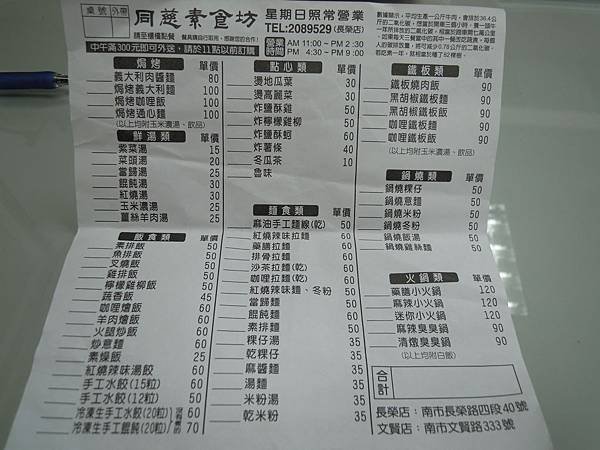 桌號 外帶
請至櫃檯點餐
同慈素食坊
餐具請自行取用,感謝您的合作!
星期日照常營業
TEL:2089529(長榮店)
中午滿300元即可外送,請於11點以前訂購
營業時間 AM 11:00~PM 2:30
PM 4:30~PM 9:00
數據顯示,平均生產一公斤牛肉,會排放36.4公斤的二氧化碳,
焗烤 單價
義大利肉醬麵 80
焗烤義大利麵 100
焗烤咖哩飯 100
焗烤通心麵 100
(以上均附玉米濃湯、飲品)
鮮湯類 單價
紫菜湯 15
菜頭湯 20
當歸湯 25
餛飩湯 30
紅燒湯 30
玉米濃湯 25
薑絲羊肉湯 25
飯食類 單價
素排飯 50
魚排飯 50
叉燒飯 50
雞排飯 50
檸檬雞柳飯 50
蔬香飯 45
咖哩燴飯 60
羊肉燴飯 60
火腿炒飯 60
炒意麵 60
素燥飯 25
紅燒辣味湯餃 60
手工水餃(15粒) 60
手工水餃(12粒) 50
冷凍生手工水餃(20粒) 60
冷凍生手工餛飩(20粒) 70
點心類 單價
燙地瓜葉 30
燙高麗菜 30
炸鹽酥雞 50
炸檸檬雞柳 50
炸鹽酥蚵 60
炸薯條 40
冬瓜茶 10
魯味
麵食類 單價
麻油手工麵線(乾) 50
紅燒辣味拉麵 60
藥膳拉麵 60
排骨拉麵 60
沙茶拉麵(乾) 60
咖哩拉麵(乾) 60
紅燒辣味麵、冬粉 50
當歸麵 50
餛飩麵 50
素排麵 50
粿仔湯 35
乾粿仔 35
麻醬麵 35
湯麵 35
米粉湯 35
乾米粉 35
鐵板類 單價
鐵板燒肉飯 90
黑胡椒鐵板麵 90
黑胡椒鐵板飯 90
咖哩鐵板麵 90
咖哩鐵板飯 90
(以上均附玉米濃湯、飲品)
鍋燒類 單價
鍋燒粿仔 50
鍋燒意麵 50
鍋燒米粉 50
鍋燒冬粉 50
鍋燒飯湯 50
鍋燒雞絲麵 50
火鍋類 單價
藥膳小火鍋 120
麻辣小火鍋 120
迷你小火鍋 120
麻辣臭臭鍋 90
清燉臭臭鍋 90
(以上均附白飯)
合計
長榮店:南市長榮路四段40號
文賢店:南市文賢路333號